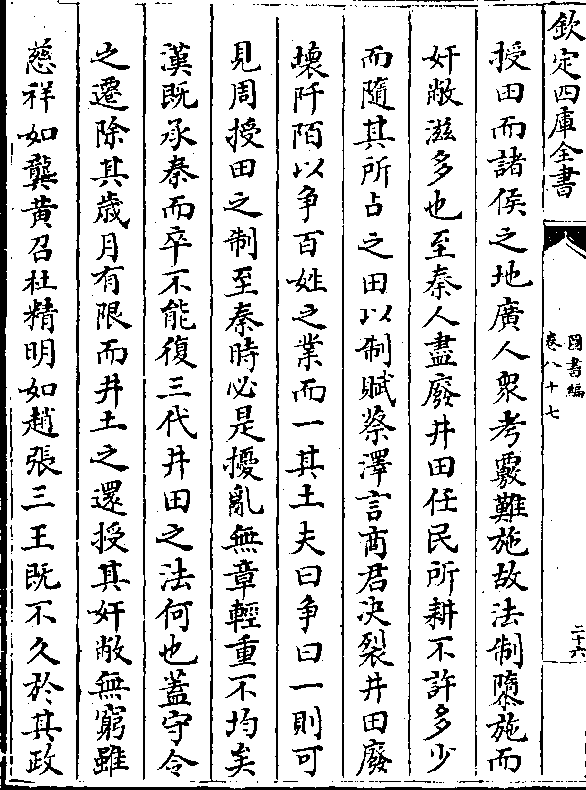 欽定四庫全書
圖書編
卷八十七
二十六
授田而諸侯之地廣人衆考覈難施故法制隳施而
奸敝滋多也至秦人盡廢井田任民所耕不計多少
而隨其所占之田以制賦蔡澤言商君决裂井田廢
壊阡陌以争百姓之業而一其土夫曰争曰一則可
見周授田之制至秦時必是擾亂無章輕重不均矣
漢既承秦而卒不能復三代井田之法何也蓋守令
之遷除其歲月有限而井土之還授其奸敝無窮雖
慈祥如龔黄召杜精明如趙張三王既不久於其政